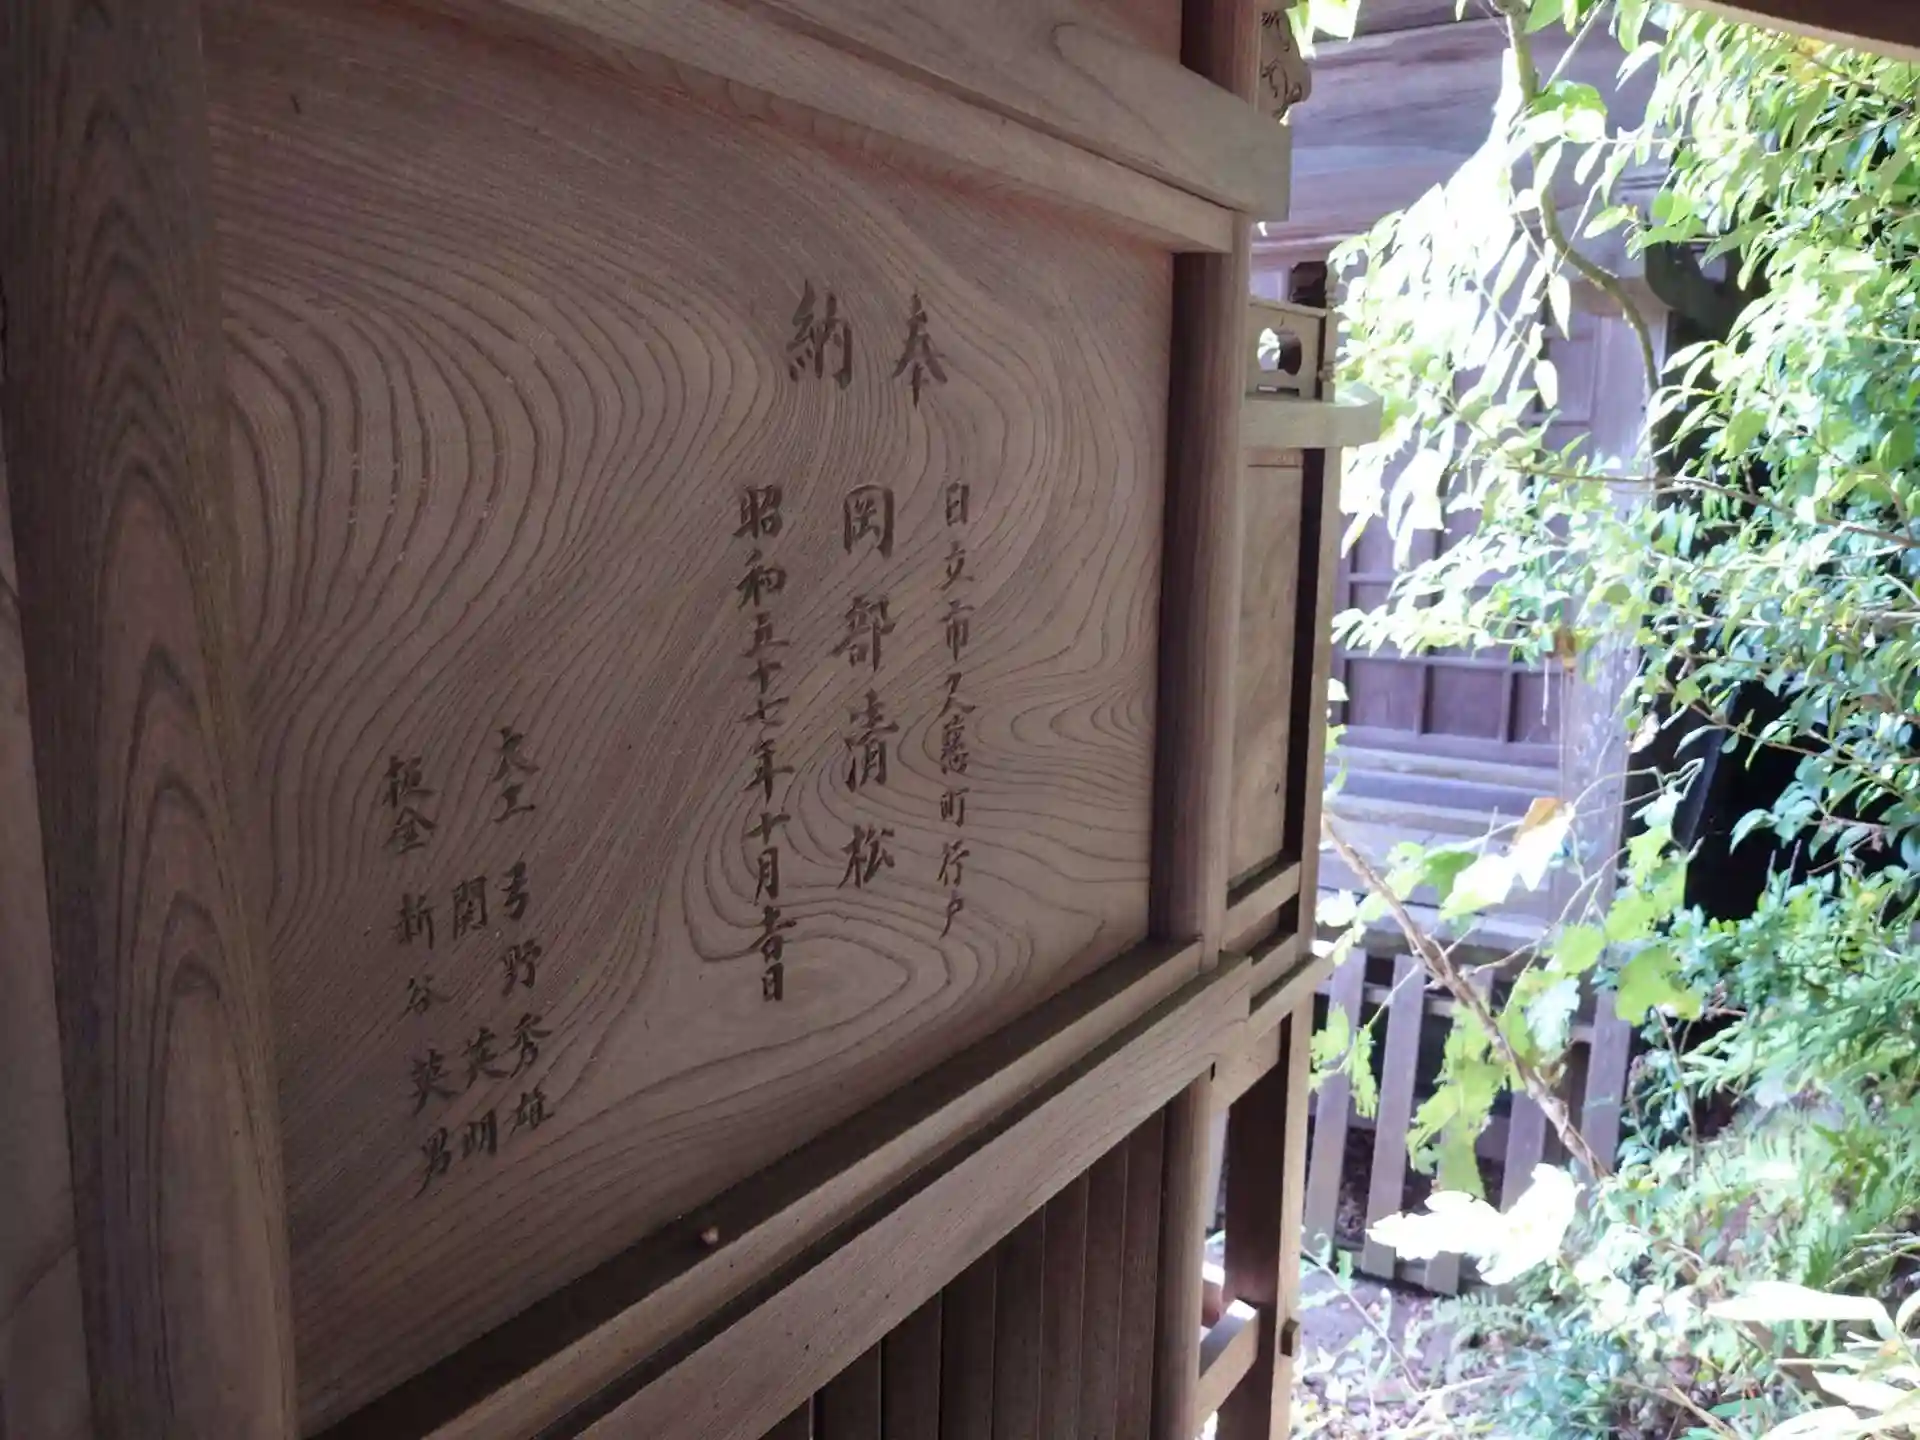 奉納
日立市久慈町行戸
岡部清松
昭和五十七年十月吉日
大工 弓野秀雄
関 英明
板金 新谷英男